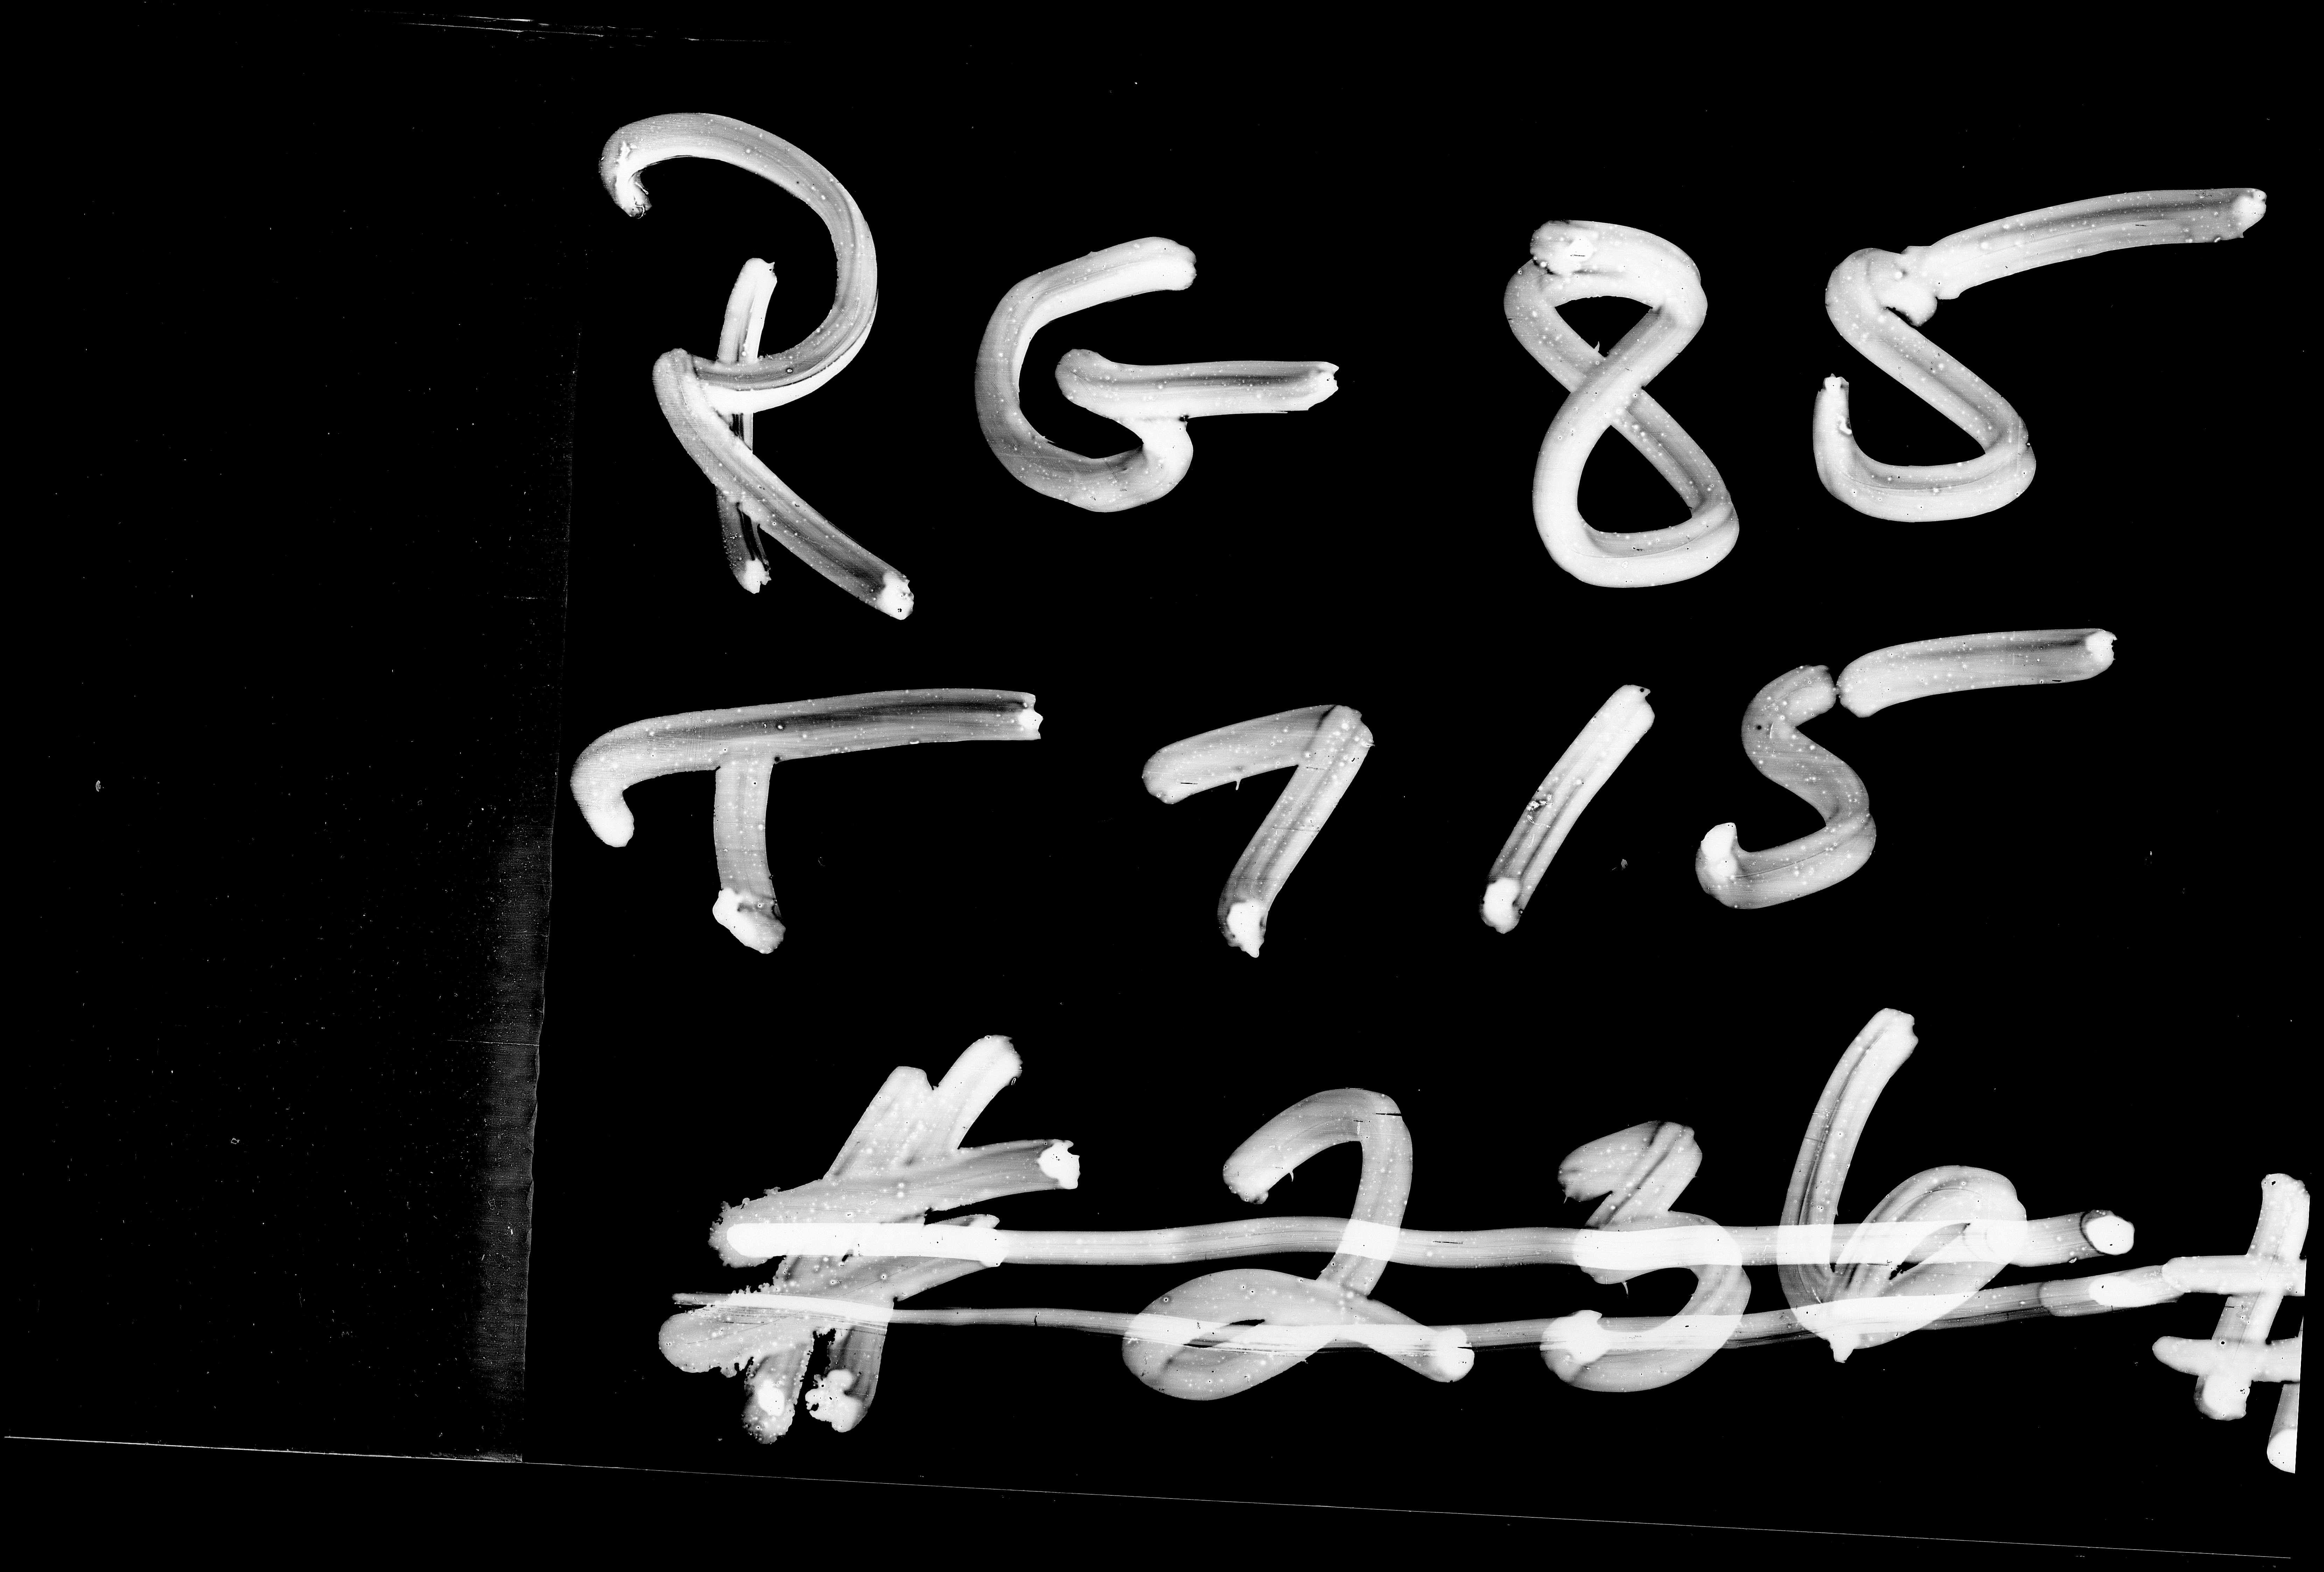 RG 85
T715
# 236 #